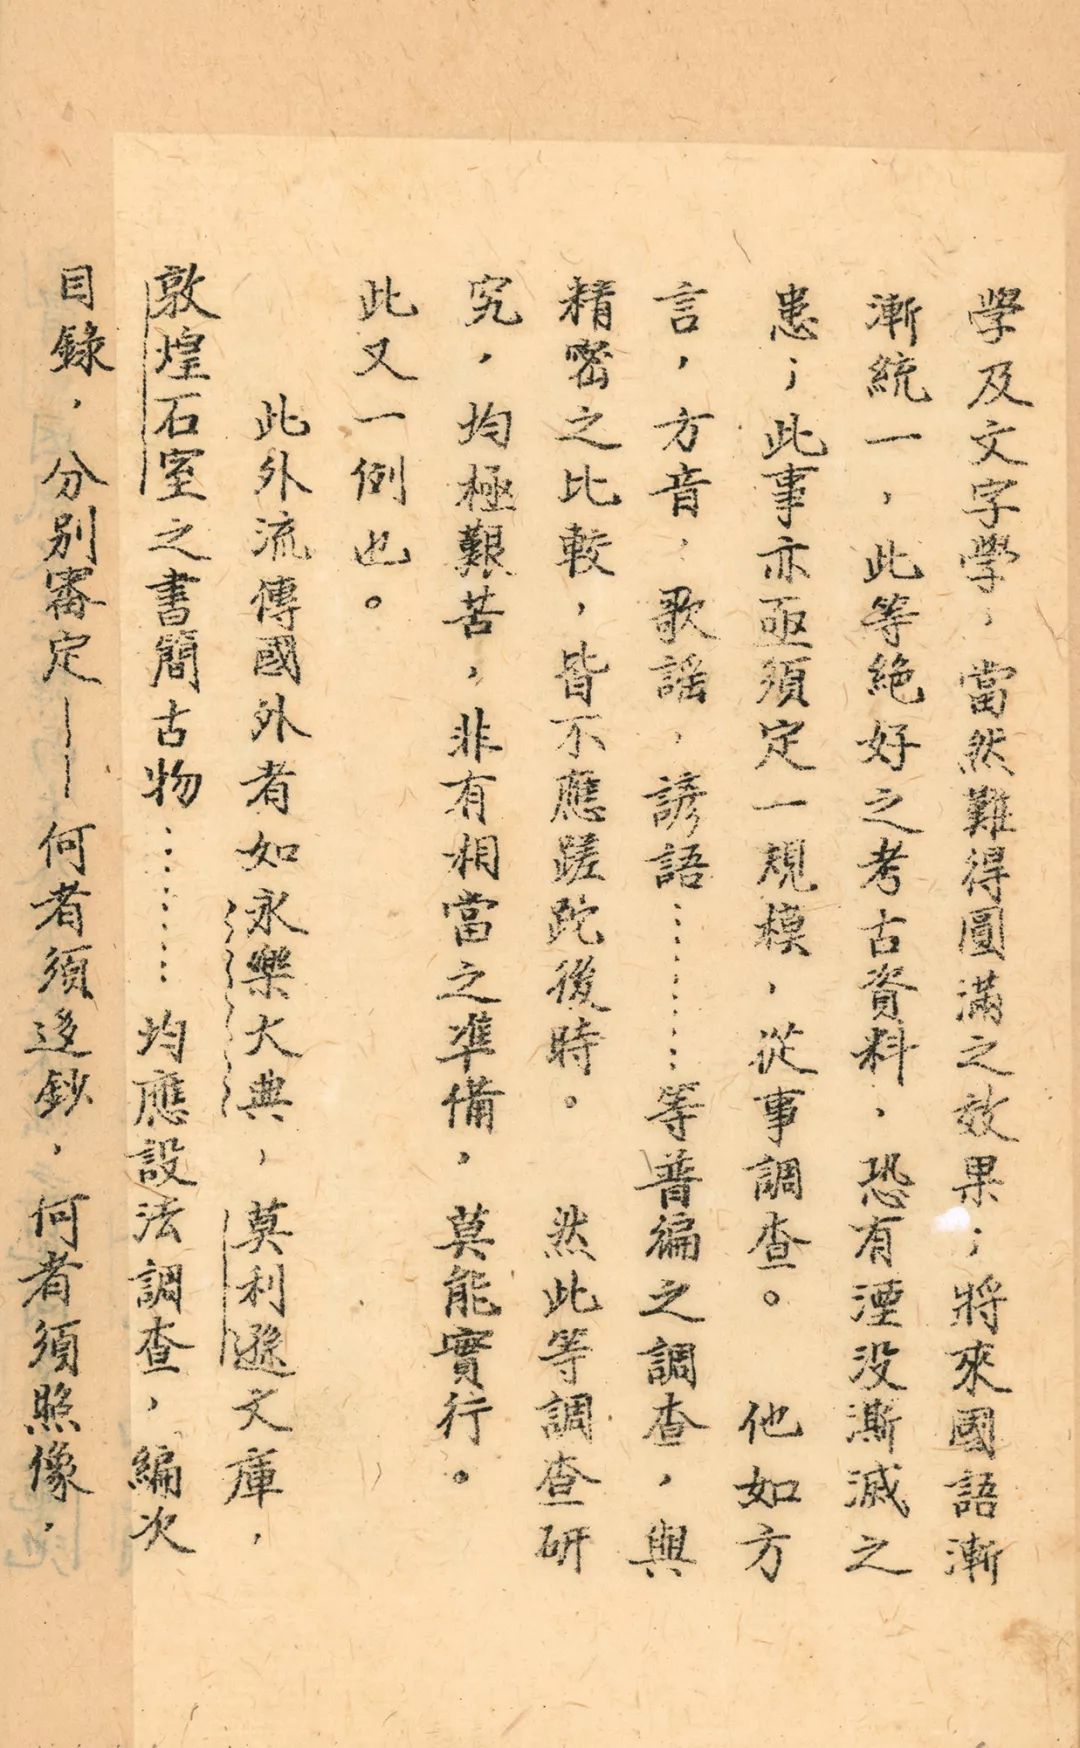 學及文字學，當然難得圓滿之效果；將來國語漸
漸統一，此等絕好之考古資料，恐有湮没澌滅之
患；此事亦亟須定一規模，從事調查。他如方
言，方音，歌謠，諺語………等普徧之調查，與
精密之比較，皆不應蹉跎後時。然此等調查研
究，均極艱苦，非有相當之準備，莫能實行。
此又一例也。
此外流傳國外者如永樂大典，莫利遜文庫，
敦煌石室之書簡古物………均應設法調查，編次
目錄，分別審定——何者須迻鈔，何者須照像，